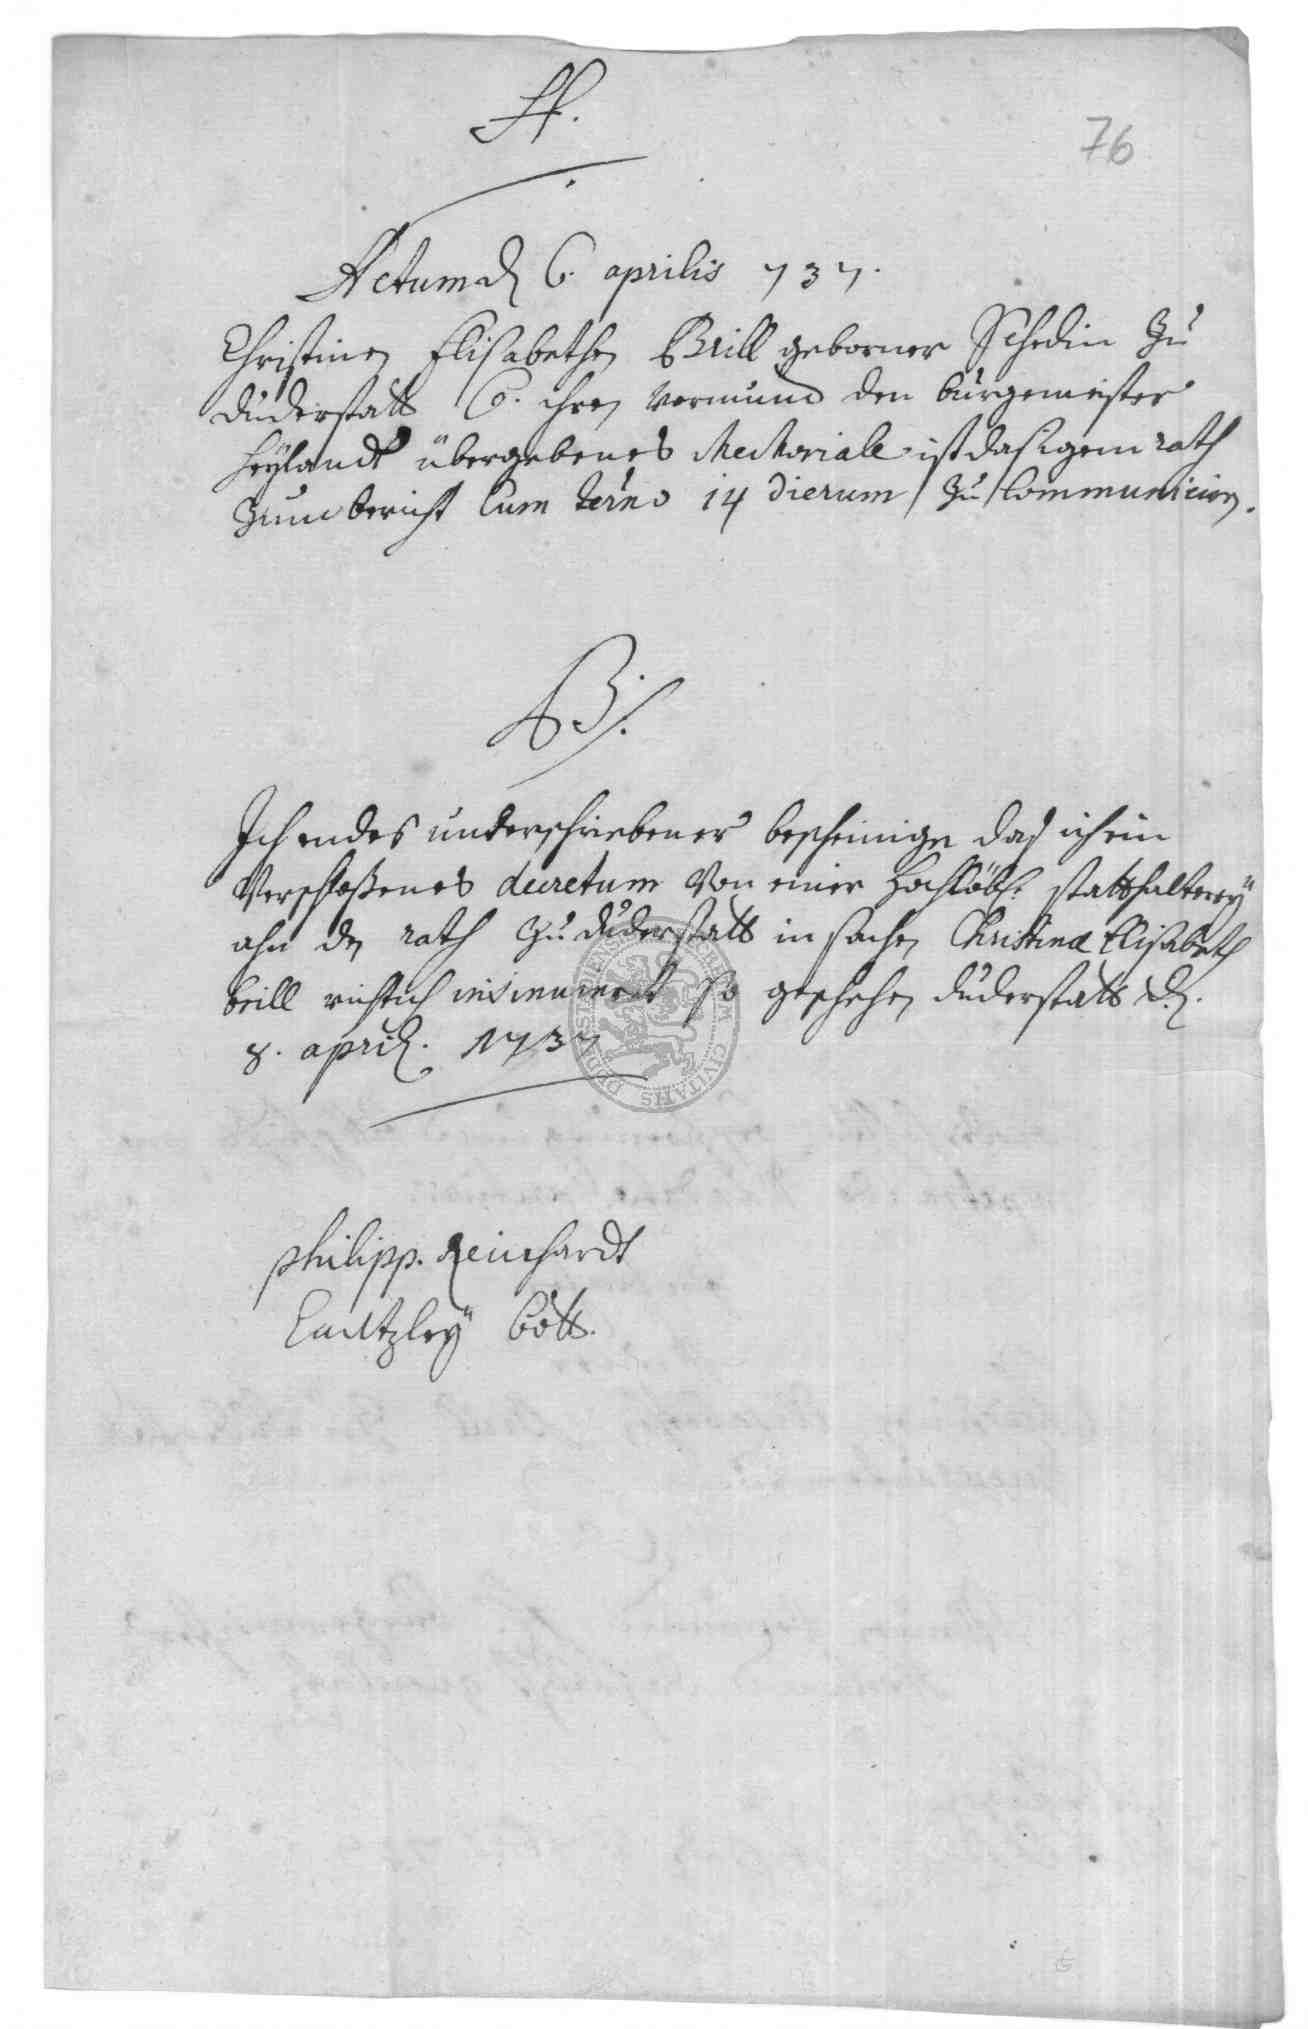 A.
76
Actum d 6. aprilis 737.
Christinen Elisabethen Brill geborner Schedin Zu
duderstatt C. ihren vormund den burgemeister
heylandt übergebenes Memoriale ist dasigem rath
Zum bericht Cum termino 14 dierum Zu Communiciren.
B.
Ich endes underschriebener bescheinige das ich ein
Verschloßenes decretum von einer hochlöbl. statthalterey
ahn den rath Zu duderstatt in sachen Christina Elisabeth
brill richtich insinuieret so geschehen duderstatt d.
8. april. 1737
philipp. Reinhardt
Cantzley bott.